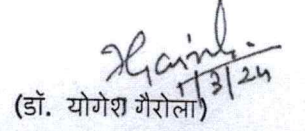 1/3/24
(डॉ. योगेश गैरोला)